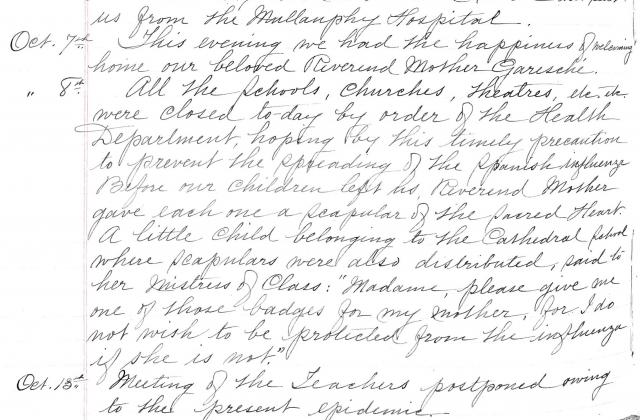 us from the Mullanphy Hospital.
Oct. 7th This evening we had the happiness of welcoming
home our beloved Reverend Mother Garesché.
" 8th All the schools, churches, theatres, etc. etc.
were closed to-day by order of the Health
Department, hoping by this timely precaution
to prevent the spreading of the Spanish influenza
Before our children left us, Reverend Mother
gave each one a scapular of the Sacred Heart.
A little child belonging to the Cathedral School
where scapulars were also distributed, said to
her Mistress of Class: "Madame, please give me
one of those badges for my mother, for I do
not wish to be protected from the influenza
if she is not."
Oct. 15th Meeting of the Teachers postponed owing
to the present epidemic.